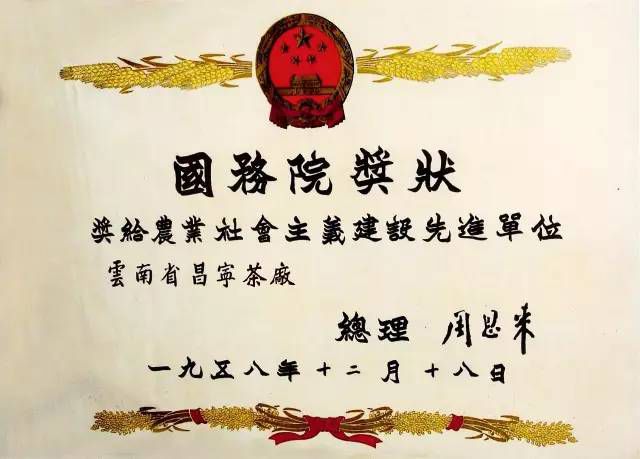 國務院奬狀
奬給農業社會主義建設先進單位
雲南省昌寧茶廠
總理 周恩来
一九五八年十二月十八日